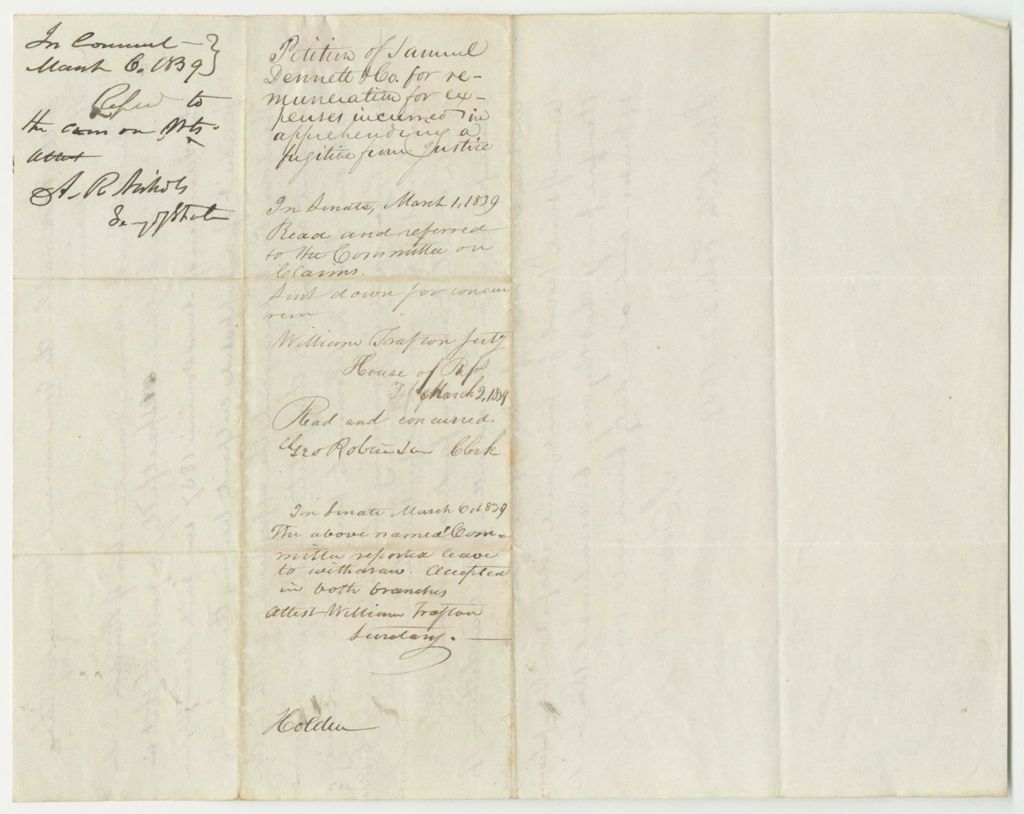 In Council —
March 6. 1839
Refd to
the com on Wts.
attest
A. R. Nichols
Secy of State
Petition of Samuel
Dennett & Co. for re-
muneration for ex-
penses incurred in
apprehending a
fugitive from Justice
In Senate, March 1, 1839
Read and referred
to the Committee on
Claims.
Sent down for concur
rence
William Trafton Secty
House of Reps
March 2, 1839
Read and concurred.
Geo Robinson Clerk
In Senate March 6, 1839
The above named Com-
mittee reported leave
to withdraw. Accepted
in both branches
Attest William Trafton
Secretary. —
Holden